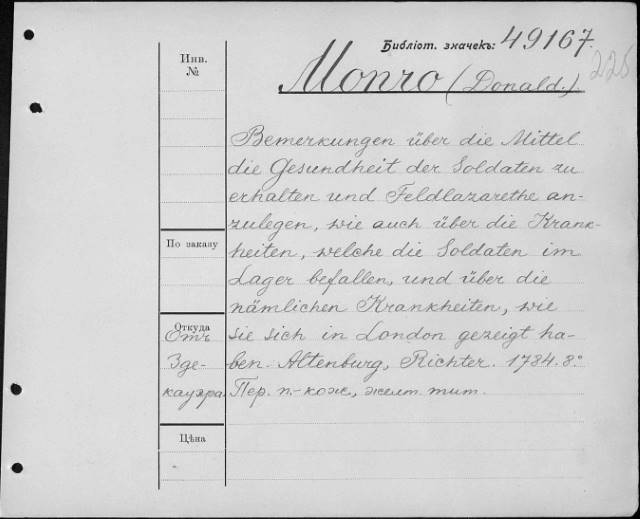 Библіот. значекъ: 49167.
225
Инв.
№
Monro (Donald.)
Bemerkungen über die Mittel
die Gesundheit der Soldaten zu
erhalten und Feldlazarethe an-
zulegen, wie auch über die Krank-
heiten, welche die Soldaten im
Lager befallen, und über die
nämlichen Krankheiten, wie
sie sich in London gezeigt ha-
ben. Altenburg, Richter. 1784. 8.°
Пер. п.-кож., желт. тит.
По заказу
Откуда
Отъ
Зде-
кауэра.
Цѣна